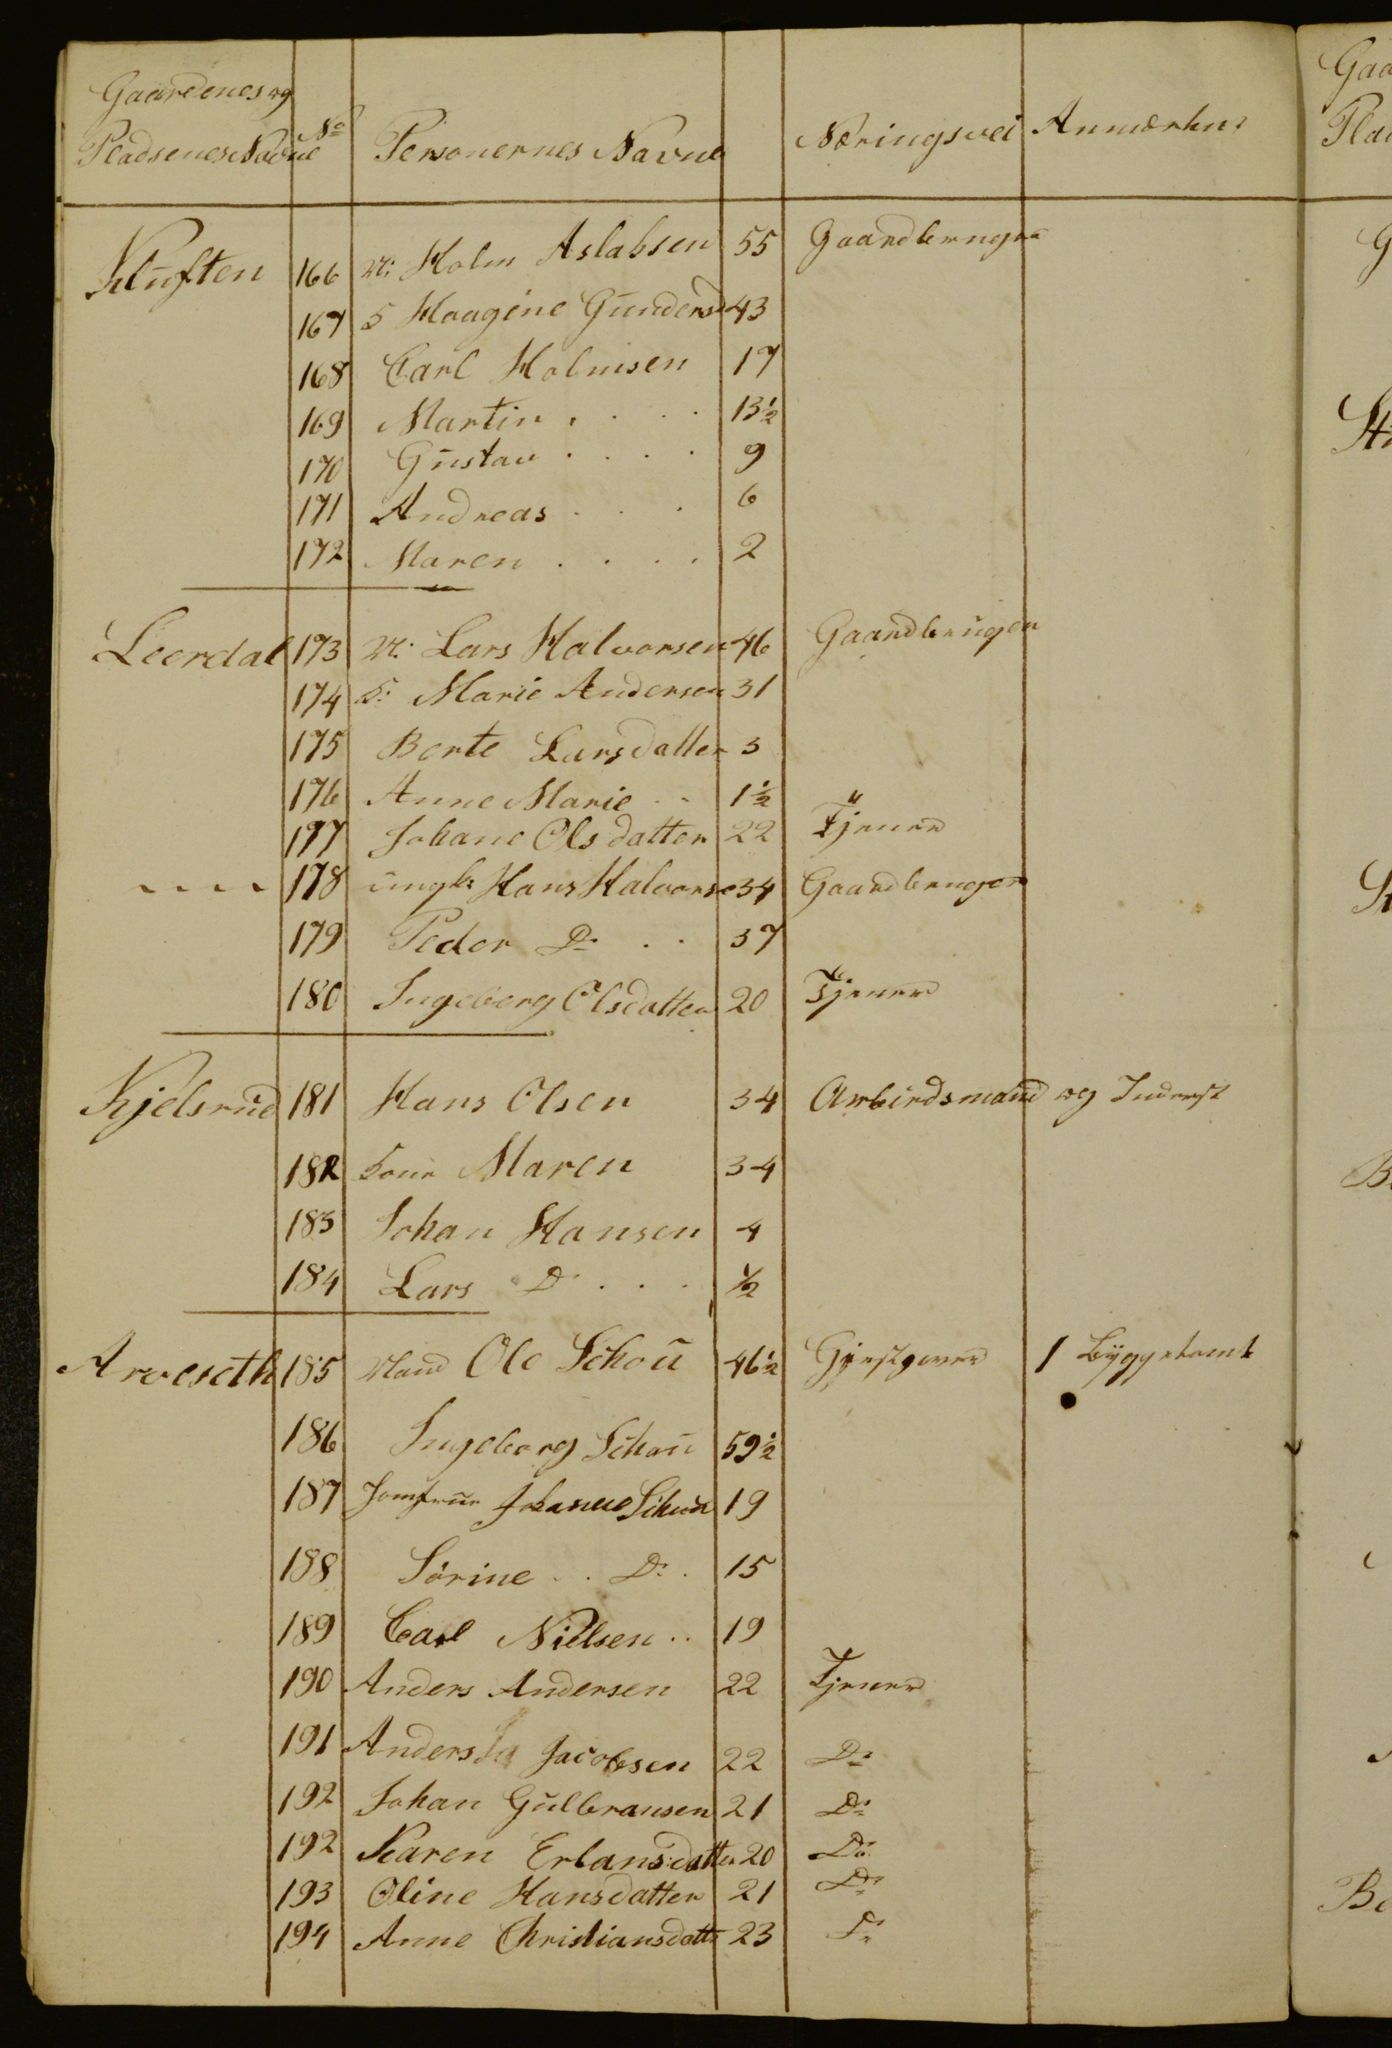 Gaardenes og
Pladsenes Navne No Personernes Navne Næringsvei Anmærkn:
Kluften 166 M: Holm Aslaksen 55 Gaardbruger
167 K Haagine Gundersd 43
168 Carl Holmsen 17
169 Martin . . . . 13½
170 Gustav . . . . 9
171 Andreas . . . 6
172 Maren . . . . 2
Leerdal 173 M: Lars Halvorsen 46 Gaardbruger
174 K: Marie Andersen 31
175 Berte Larsdatter 3
176 Anne Marie - - 1½ "
177 Johane Olsdatter 22 Tjener
- - - - 178 ungk: Hans Halvorse 34 Gaardbruger
179 Peder Do . . 37 "
180 Ingeborg Olsdatter 20 Tjener
Kjelsrud 181 Hans Olsen 34 Arbeidsmand og Inderst
182 Kone Maren 34
183 Johan Hansen 4
184 Lars Do . . . ½
Arveseth 185 Mand Ole Schou 46½ Gjestgiver 1 Byggetomt
186 Ingeborg Schou 59½
187 Jomfrue Johanne Schou 19
188 Sörine . . Do . 15
189 Carl Nielsen . . 19
190 Anders Andersen 22 Tjener
191 Anders Jacobsen 22 Do
192 Johan Gulbransen 21 Do
192 Karen Erlandsdatter 20 Do
193 Oline Hansdatter 21 Do
194 Anne Christiansdatt 23 Do